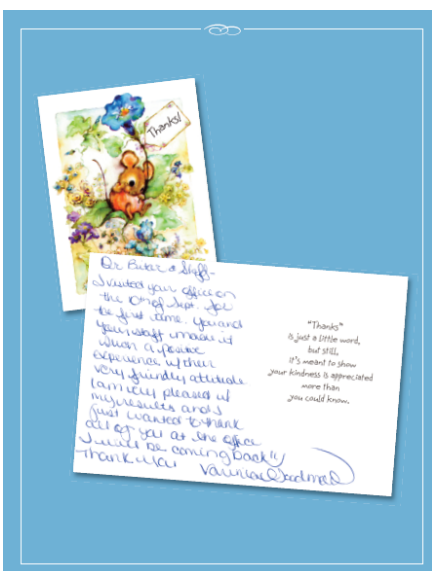 Thanks!
Dr & Staff-
I visited your office on
the 10th of Sept. for
the first time. You and
your staff made it
such a positive
experience w/their
very friendly attitude
I am very pleased w/
my results and I
just wanted to thank
all of you at the office
I will be coming back!!
Thank You
"Thanks"
is just a little word,
but still,
it's meant to show
your kindness is appreciated
more than
you could know.